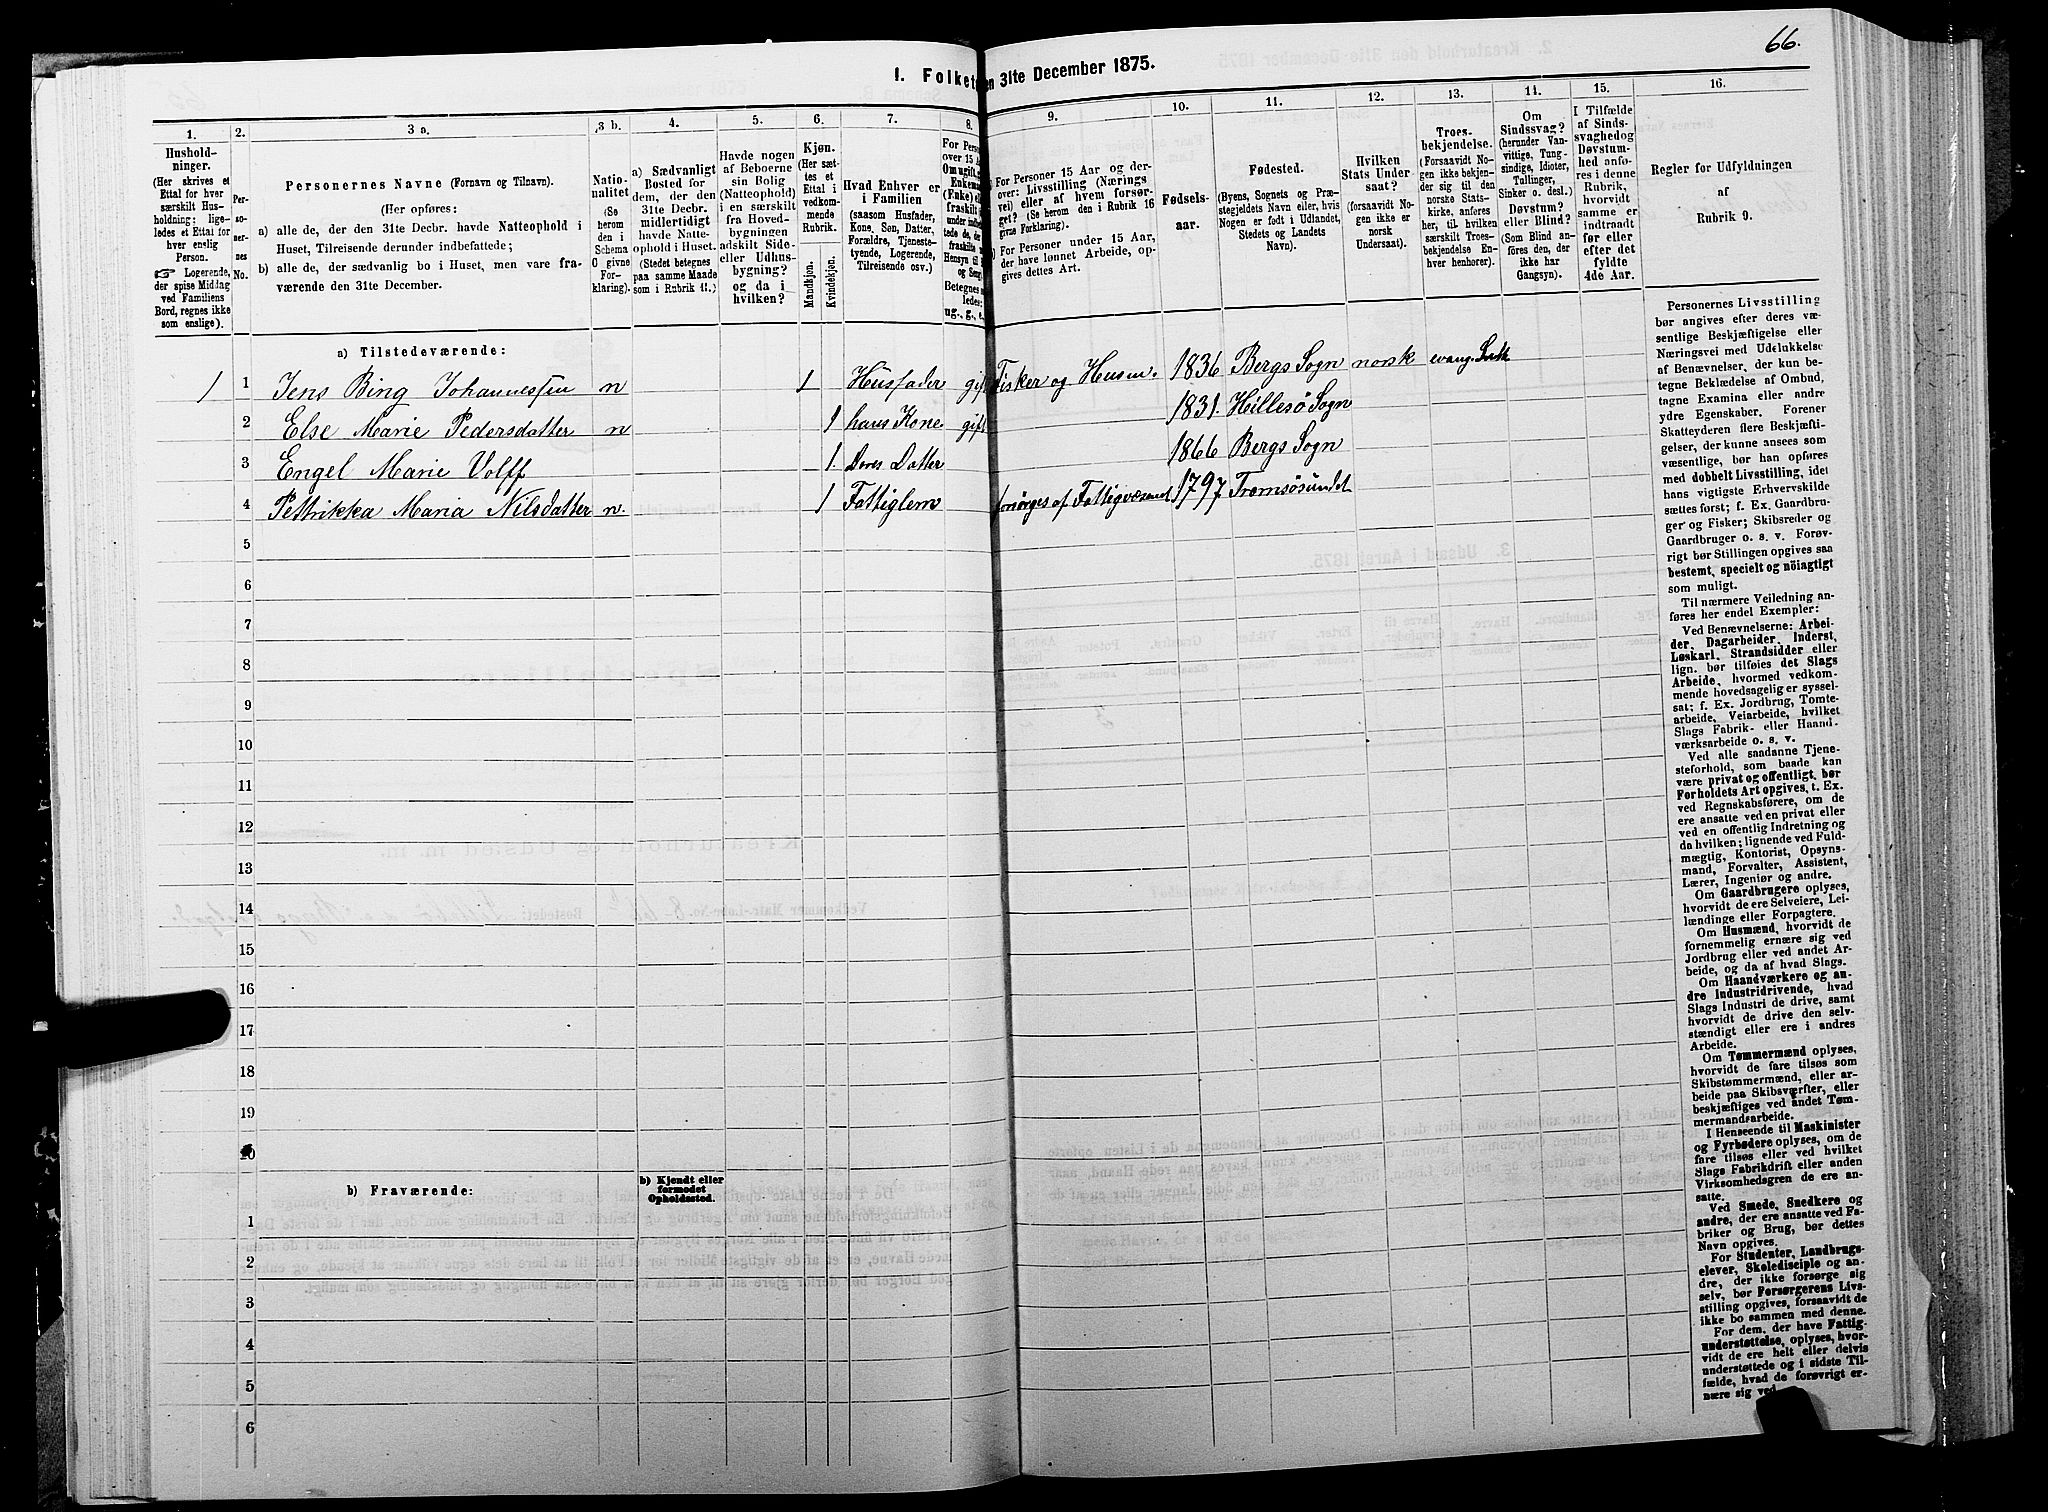 66.
I. Folket en 31te December 1875.
1. 2. 3 a. 3 b. 4. 5. 6. 7. 8. 9. 10. 11. 12. 13. 14. 15. 16.
Hushold-
ninger.
(Her skrives et
Ettal for hver
særskilt Hus-
holdning; lige-
ledes et Ettal
for hver enslig
Person.
☞ Logerende,
der spise Middag
ved Familiens
Bord, regnes ikke
som enslige).
Per-
so-
ner-
nes
No.
Personernes Navne (Fornavn og Tilnavn).
(Her opføres:
a) alle de, der den 31te Decbr. havde Natteophold i
Huset, Tilreisende derunder indbefattede;
b) alle de, der sædvanlig bo i Huset, men vare fra-
værende den 31te December.
Natio-
nalitet
(Se
herom
den i
Schema
O givne
For-
klaring).
a) Sædvanligt
Bosted for
dem, der den
31te Decbr.
midlertidigt
havde Natte-
ophold i Huset.
(Stedet betegnes
paa samme Maade
som i Rubrik 11.)
Havde nogen
af Beboerne
sin Bolig
(Natteophold)
i en særskilt
fra Hoved-
bygningen
adskilt Side-
eller Udhus-
bygning?
og da i
hvilken?
Kjøn.
(Her sæt-
tes et
Ettal i
vedkom-
mende
Rubrik.
Mandkjøn.
Kvindekjøn.
Hvad Enhver er
i Familien
(saasom Husfader,
Kone, Søn, Datter,
Forældre, Tjeneste-
tyende, Logerende,
Tilreisende osv.)
For Person
over 15 A
Om ugift,
Enkema
(Enke) el
fraskilt
under indbe
tede de, der
fraskilte
Hensyn til
og Seng.
Betegnes
ledes:
ug., g., e.,
For Personer 15 Aar og der-
over: Livsstilling (Nærings
vei) eller af hvem forsør-
get? (Se herom den i Rubrik 16
givne Forklaring).
For Personer under 15 Aar,
der have lønnet Arbeide, op-
gives dettes Art.
Fødsels-
aar.
Fødested.
(Byens, Sognets og Præ-
stegjeldets Navn eller, hvis
Nogen er født i Udlandet,
Stedets og Landets
Navn).
Hvilken
Stats Under-
saat?
(forsaavidt No-
gen ikke er
norsk
Undersaat).
Troes-
bekjendelse.
(Forsaavidt No-
gen ikke bekjen-
der sig til den
norske Stats-
kirke, anføres
her, til hvilken
særskilt Troes-
bekjendelse En-
hver henhører).
Om
Sindssvag?
(herunder Van-
vittige, Tung-
sindige, Idioter,
Tullinger,
Sinker o. desl.)
Døvstum?
eller Blind?
(Som Blind an-
føres den, der
ikke har
Gangsyn).
I Tilfælde
af Sinds-
svaghed og
Døvstum-
hed anfø-
res i denne
Rubrik,
hvorvidt
samme er
indtraadt
før eller
efter det
fyldte
4de Aar.
Regler for Udfyldningen
af
Rubrik 9.
a) Tilstedeværende:
1 1 Jens Bing Johannessen n 1 Husfader gift Fisker og Husm. 1836 Bergs Sogn norsk evang. Luth
2 Else Marie Pedersdatter n 1 hans Kone gift 1831. Hillesö Sogn
3 Engel Marie Volff 1. Deres Datter 1866 Bergs Sogn
4 Pettrikka Maria Nilsdatter n. 1 Fattiglem forsörges af Fattigvæsenet 1797. Tromsösundet
5
6
7
8
9
10
11
12
13
14
15
16
17
18
19
20
b) Fraværende:
b) Kjendt eller
formodet
Opholdssted.
1
2
3
4
5
6
Personernes Livsstilling
bør angives efter deres væ-
sentlige Beskjæftigelse eller
Næringsvei med Udelukkelse
af Benævnelser, der kun be-
tegne Beklædelse af Ombud,
tagne Examina eller andre
ydre Egenskaber. Forener
Skatteyderen flere Beskjæfti-
gelser, der kunne ansees som
væsentlige, bør han opføres
med dobbelt Livsstilling, idet
hans vigtigste Erhvervskilde
sættes først; f. Ex. Gaardbru-
ger og Fisker; Skibsreder og
Gaardbruger o. s. v. Forøv-
rigt bør Stillingen opgives saa
bestemt, specielt og nöiagtigt
som muligt.
Til nærmere Veiledning an-
føres her endel Exempler:
Ved Benævnelserne: Arbei-
der, Dagarbeider, Inderst,
Løskarl, Strandsidder eller
lign. bør tilføies det Slags
Arbeide, hvormed vedkom-
mende hovedsagelig er syssel-
sat; f. Ex. Jordbrug, Tomte-
arbeide, Veiarbeide, hvilket
Slags Fabrik- eller Haand-
værksarbeide o. s. v.
Ved alle saadanne Tjene-
steforhold, som baade kan
være privat og offentligt, bør
Forholdets Art opgives, t. Ex.
ved Regnskabsførere, om de
ere ansatte ved en privat eller
ved en offentlig Indretning og
da hvilken; lignende ved Fuld-
mægtig, Kontorist, Opsyns-
mand, Forvalter, Assistent,
Lærer, Ingeniør og andre.
Om Gaardbrugere oplyses,
hvorvidt de ere Selveiere, Lei-
lændinge eller Forpagtere.
Om Husmænd, hvorvidt de
fornemmelig ernære sig ved
Jordbrug eller ved andet Ar-
beide, og da af hvad Slags.
Om Haandværkere og an-
dre Industridrivende, hvad
Slags Industri de drive, samt
hvorvidt de drive den selv-
stændigt eller ere i andres
Arbeide.
Om Tømmermænd oplyses,
hvorvidt de fare tilsøs som
Skibstømmermænd, eller ar-
beide paa Skibsværfter, eller
beskjæftiges ved andet Tøm-
mermandsarbeide.
I Henseende til Maskinister
og Fyrbødere oplyses, om de
fare tilsøs eller ved hvilket
Slags Fabrikdrift eller anden
Virksomhedsgren de ere an-
satte.
Ved Smede, Snedkere og
andre, der ere ansatte ved Fa-
briker og Brug, bør dettes
Navn opgives.
For Studenter, Landbrugs-
elever, Skoledisciple og an-
dre, der ikke forsørge sig
selv, bør Forsørgerens Livs-
stilling opgives, forsaavidt de
ikke bo sammen med denne.
For dem, der have Fattig-
understøttelse, oplyses, hvor-
vidt de ere helt eller delvis
understøttede og i sidste Til-
fælde, hvad de forøvrigt er-
nære sig ved.